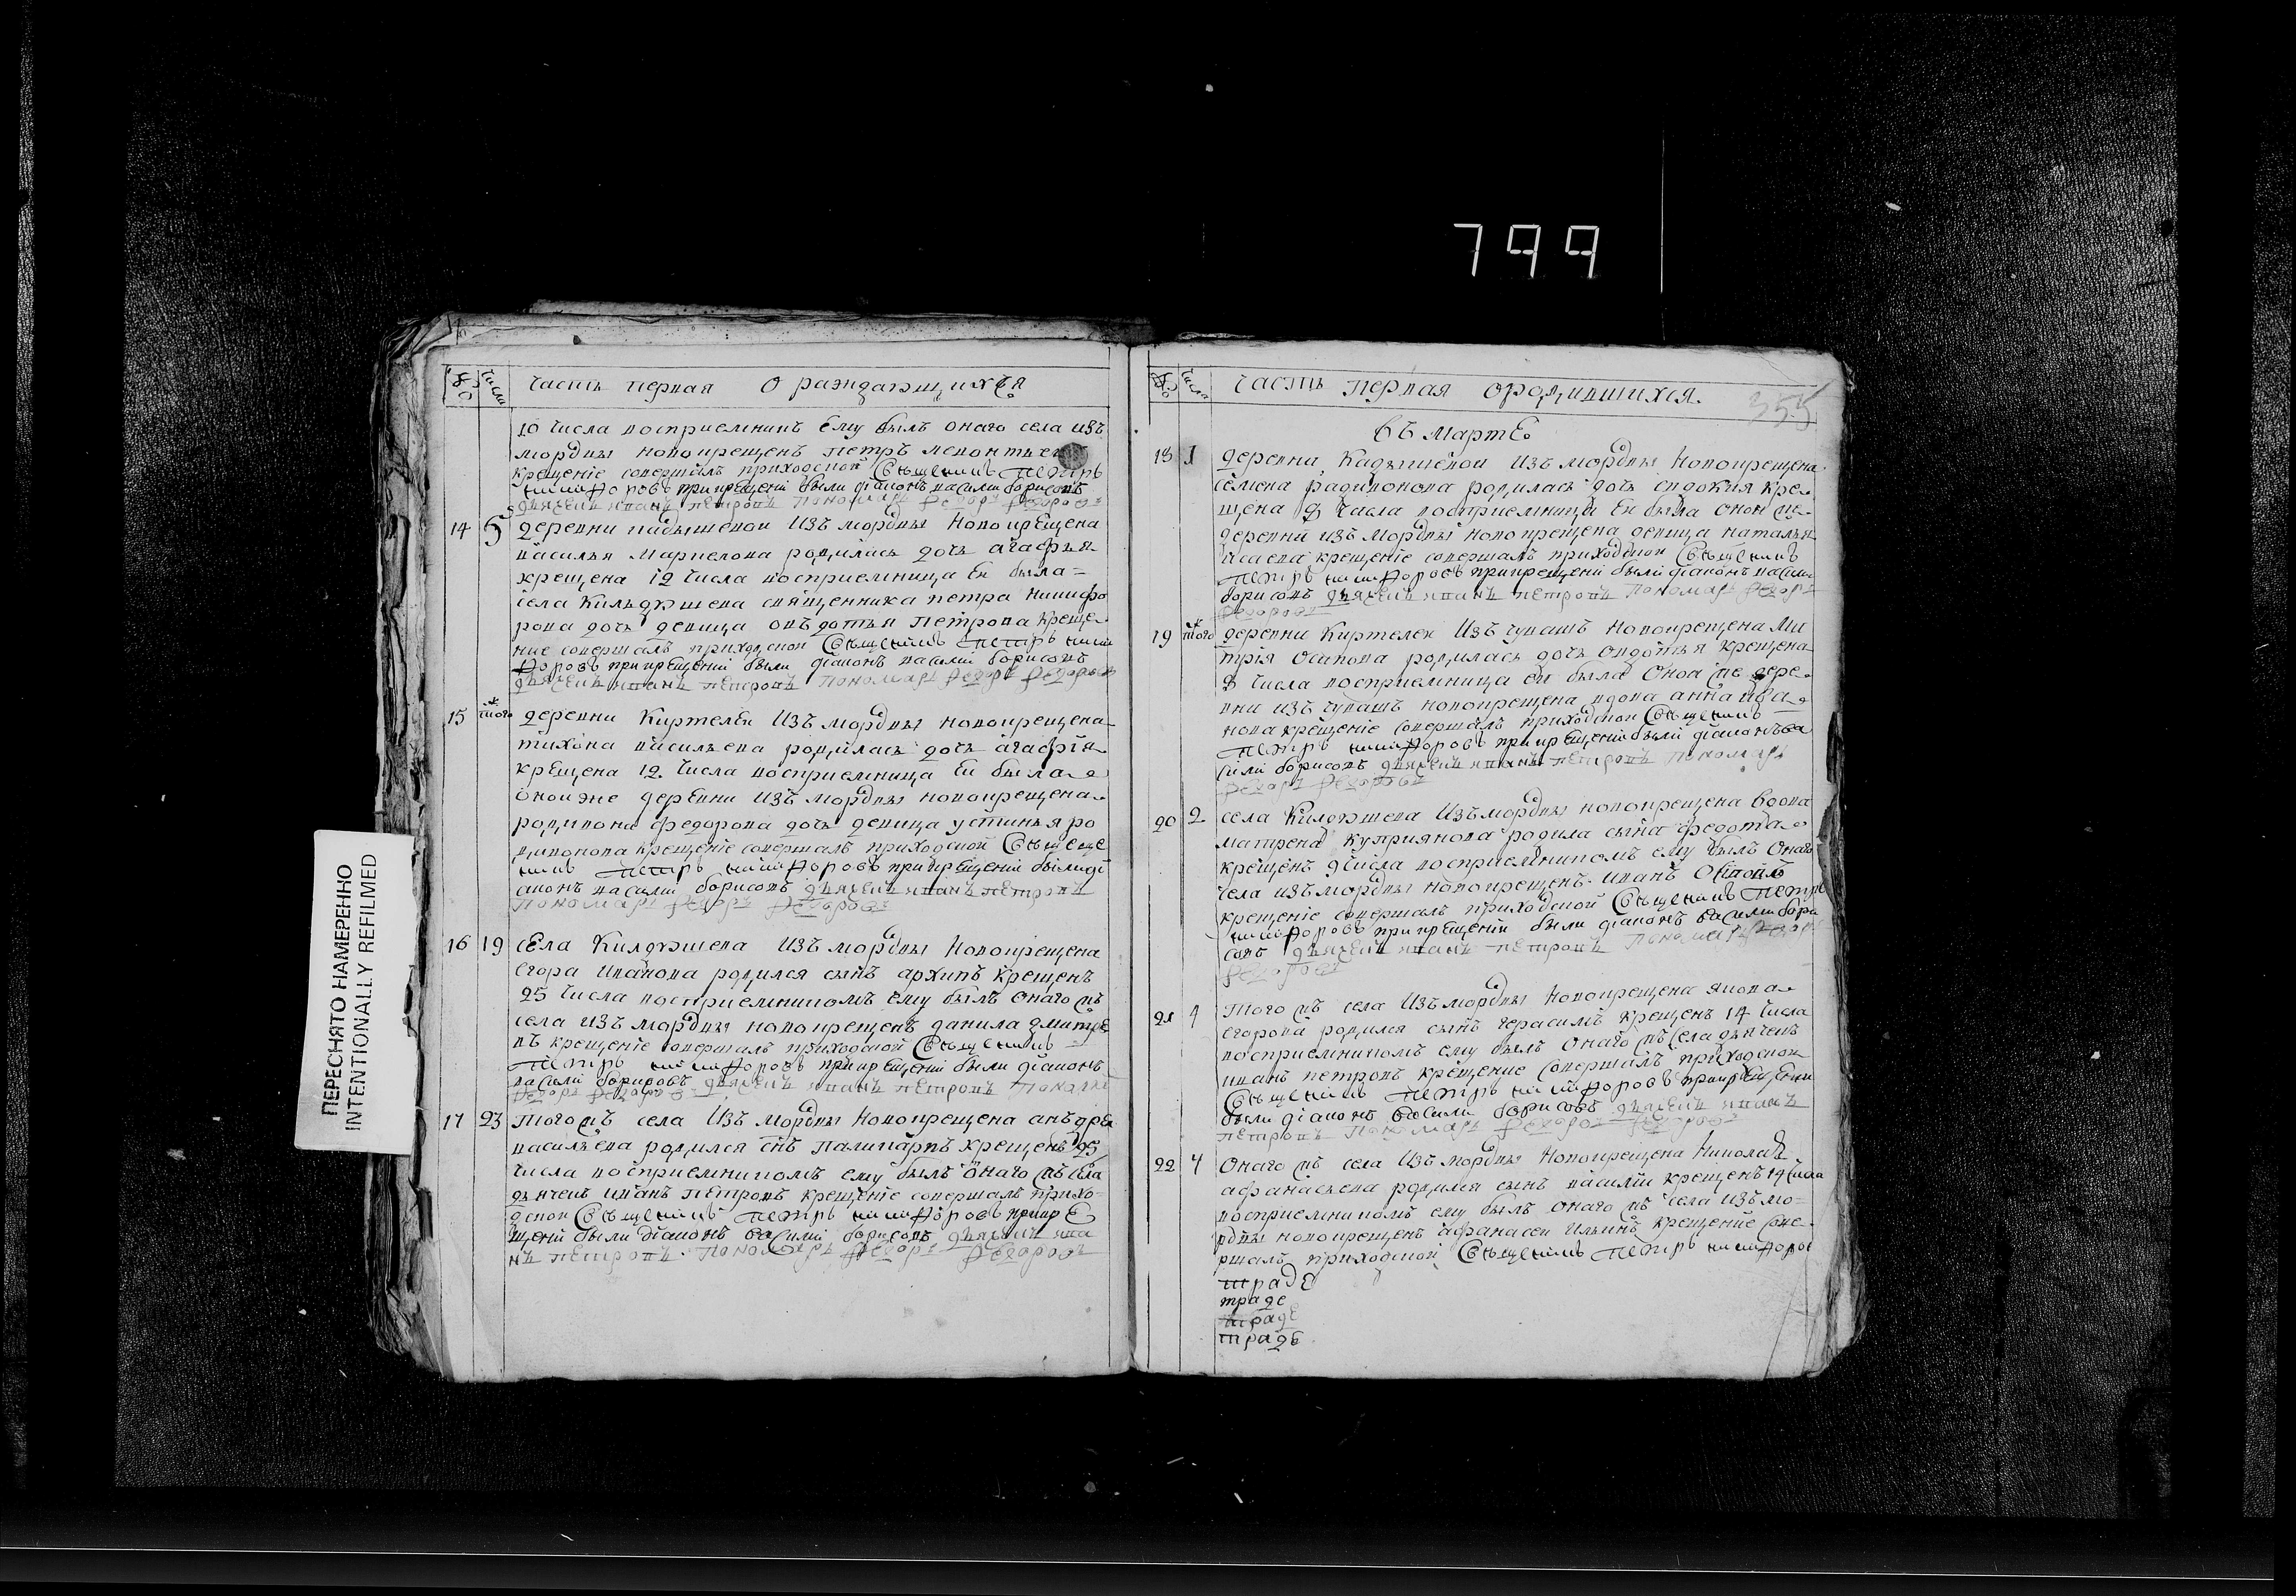 799
ПЕРЕСНЯТО НАМЕРЕННО
INTENTIONALLY REFILMED
№ числа часть первая О раждающихся
10 числа восприемникъ Ему былъ онаго села изъ
мордвы новокрещенъ петръ леонтьев
крещение совершалъ приходской Священникъ Петръ
никифоровъ при крещении были диаконъ василий борисовъ
дьячекъ иванъ петровъ Пономарь Федоръ Федоровъ
14 5 деревни кадышевои Изъ мордвы Новокрещена
василья Маркелова родилась дочь агафья
крещена 12 числа восприемница Ей была
села Кильдюшева священника петра никифо
рова дочь девица овъдотья Петрова Креще
ние совершалъ приходской Священникъ Петръ ники
форовъ при крещении были диаконъ василий борисовъ
дьячекъ иванъ петровъ Пономарь Федоръ Федоровъ
15 того ж деревни Киртелеи Изъ мордвы новокрещена
тихона васильева родилась дочь агафия
крещена 12 числа восприемница Ей была
оноиже деревни изъ мордвы новокрещена
родивона федорова дочь девица устинья ро
дивонова крещение совершалъ приходской Священ
никъ Петръ никифоровъ при крещении были ди
аконъ василий борисовъ дьячекъ иванъ петровъ
Пономарь Федоръ Федоровъ
16 19 села Килдюшева изъ мордвы Новокрещена
егора иванова родился сынъ архипъ крещенъ
25 числа восприемникомъ ему былъ онаго жъ
села изъ мордвы новокрещенъ данила дмитре
въ крещение совершалъ приходской Священникъ
Петръ никифоровъ при крещении были диаконъ
василий борисовъ дьячекъ иванъ петровъ Пономарь
Федоръ Федоровъ
17 23 Того жъ села Изъ мордвы Новокрещена анъдрея
васильева родился сынъ Паликарпъ крещенъ 25
числа восприемникомъ ему былъ онаго жъ села
дьячекъ иванъ петровъ крещение совершалъ прихо
дской Священникъ Петръ никифоровъ при кре
щении были диаконъ василий борисовъ дьячекъ ива
нъ петровъ Пономарь Федоръ Федоровъ
№ числа часть первая ородившихся. 355
Въ Марте
18 1 деревни Кадышевои изъ мордвы Новокрещена
семена радивонова родилась дочь евдокия кре
щена 8 числа восприемница Ей была онои же
деревни изъ мордвы новокрещена девица наталья
исаева крещение совершалъ приходской Священникъ
Петръ никифоровъ при крещении были диаконъ василий
борисовъ дьячекъ иванъ петровъ Пономарь Федоръ
Федоровъ
19 того ж деревни Киртелеи Изъ чувашъ Новокрещена Ми
трия Осипова родилась дочь овдотья крещена
8 числа восприемница Ей была Онои же дере
вни изъ чувашъ новокрещена вдова анна ива
нова крещение совершалъ приходской Священникъ
Петръ никифоровъ при крещении были диаконъ ва
силий борисовъ дьячекъ иванъ петровъ Пономарь
Федоръ Федоровъ
20 2 села Килдюшева Изъ мордвы новокрещена вдова
матрена Куприянова родила сына федота
крещенъ 9 числа восприемникомъ ему былъ Онаго
села изъ мордвы новокрещенъ иванъ Осиповъ
крещение совершалъ приходской Священникъ Петръ
никифоровъ при крещении были диаконъ василий бори
совъ дьячекъ иванъ петровъ Пономарь Федоръ
Федоровъ
21 4 Того жъ села Изъ мордвы Новокрещена якова
егорова родился сынъ герасимъ крещенъ 14 числа
восприемникомъ ему былъ Онаго жъ села дьячекъ
иванъ петровъ крещение совершалъ приходской
Священникъ Петръ никифоровъ при крещении
были диаконъ василий борисовъ дьячекъ иванъ
петровъ Пономарь Федоръ Федоровъ
22 4 Онаго жъ села Изъ мордвы Новокрещена Николая
афанасьева родился сынъ василий крещенъ 14 числа
восприемникомъ ему былъ онаго жъ села изъ мо
рдвы новокрещенъ афанасеи ильинъ крещение сове
ршалъ приходской Священникъ Петръ никифоров
траде
траде
траде
традь